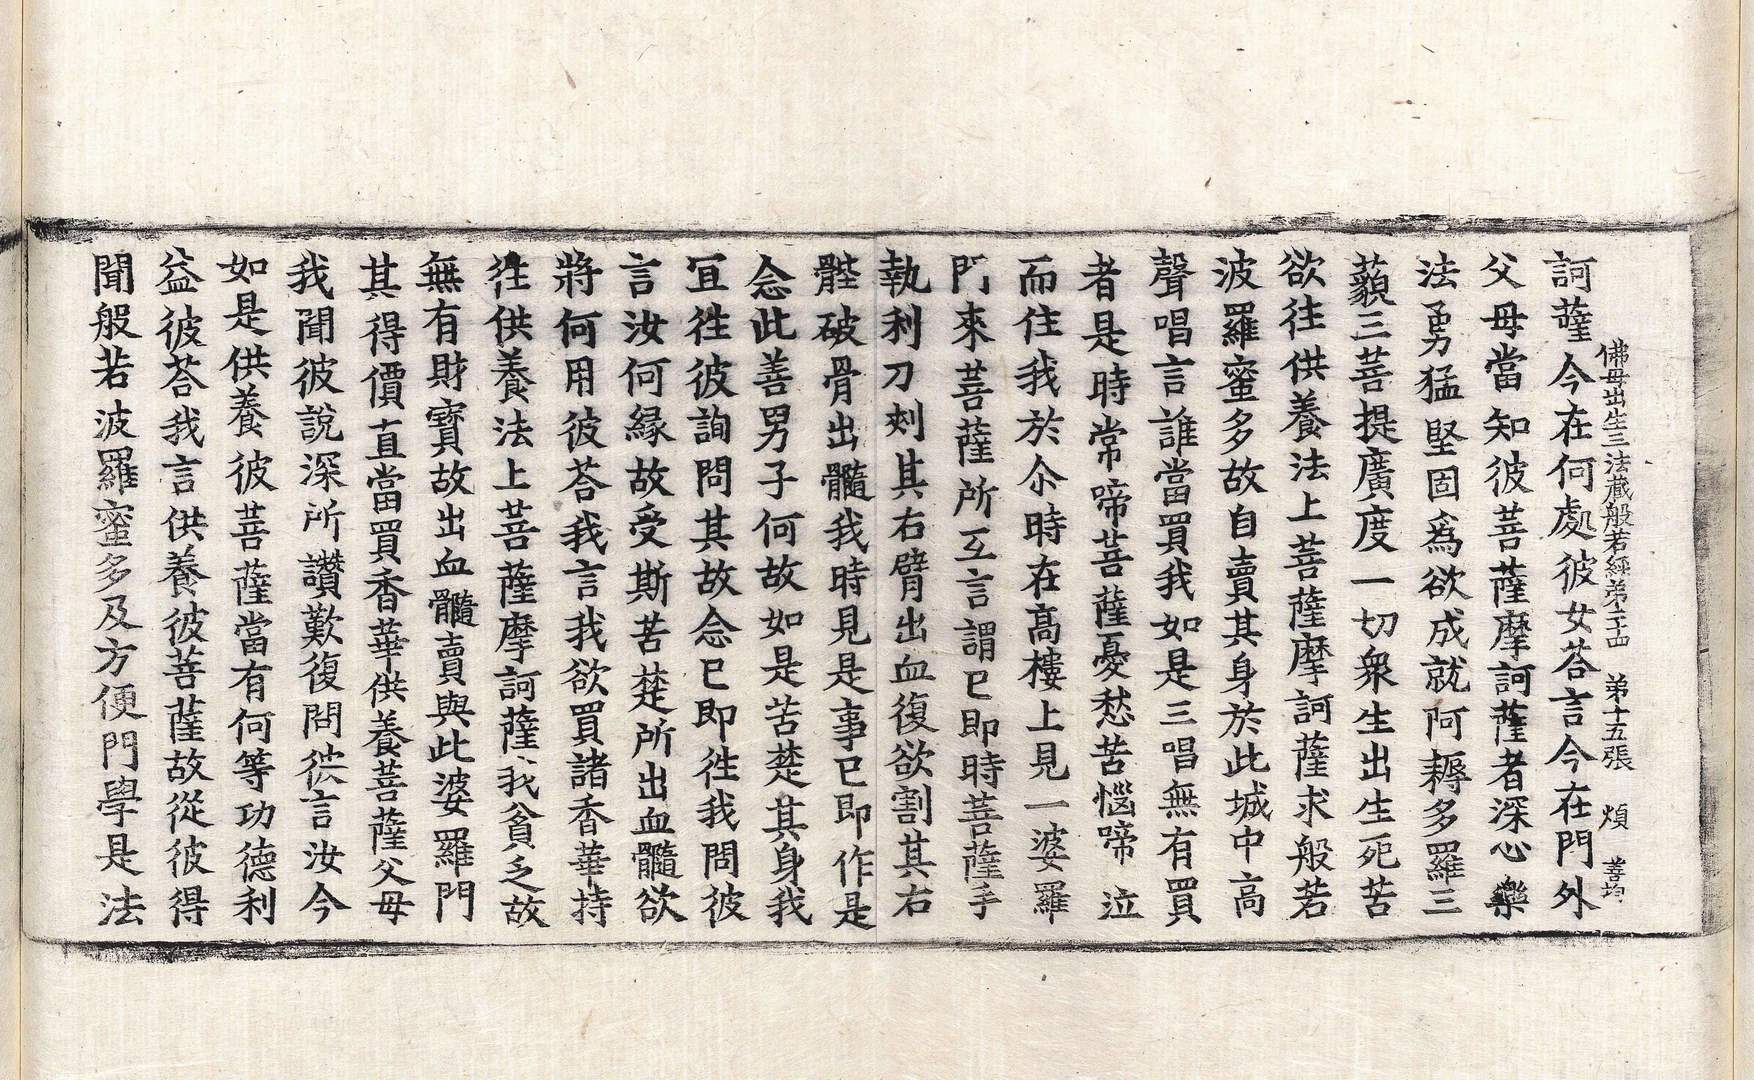 佛母出生三法藏般若經第二十四　第十五張　煩　善均
訶薩今在何處彼女荅言今在門外
父母當知彼菩薩摩訶薩者深心樂
法勇猛堅固爲欲成就阿耨多羅三
藐三菩提廣度一切衆生出生死苦
欲往供養法上菩薩摩訶薩求般若
波羅蜜多故自賣其身於此城中高
聲唱言誰當買我如是三唱無有買
者是時常啼菩薩憂愁苦惱啼泣
而住我於尒時在高樓上見一婆羅
門來菩薩所互言謂已即時菩薩手
執利刀刺其右臂出血復欲割其右
髀破骨出髓我時見是事已即作是
念此善男子何故如是苦楚其身我
冝徃彼詢問其故念已即徃我問彼
言汝何緣故受斯苦楚所出血髓欲
將何用彼荅我言我欲買諸香華持
徃供養法上菩薩摩訶薩我貧乏故
無有財寶故出血髓賣與此婆羅門
其得價直當買香華供養菩薩父母
我聞彼說深所讚歎復問彼言汝今
如是供養彼菩薩當有何等功德利
益彼荅我言供養彼菩薩故從彼得
聞般若波羅蜜多及方便門學是法